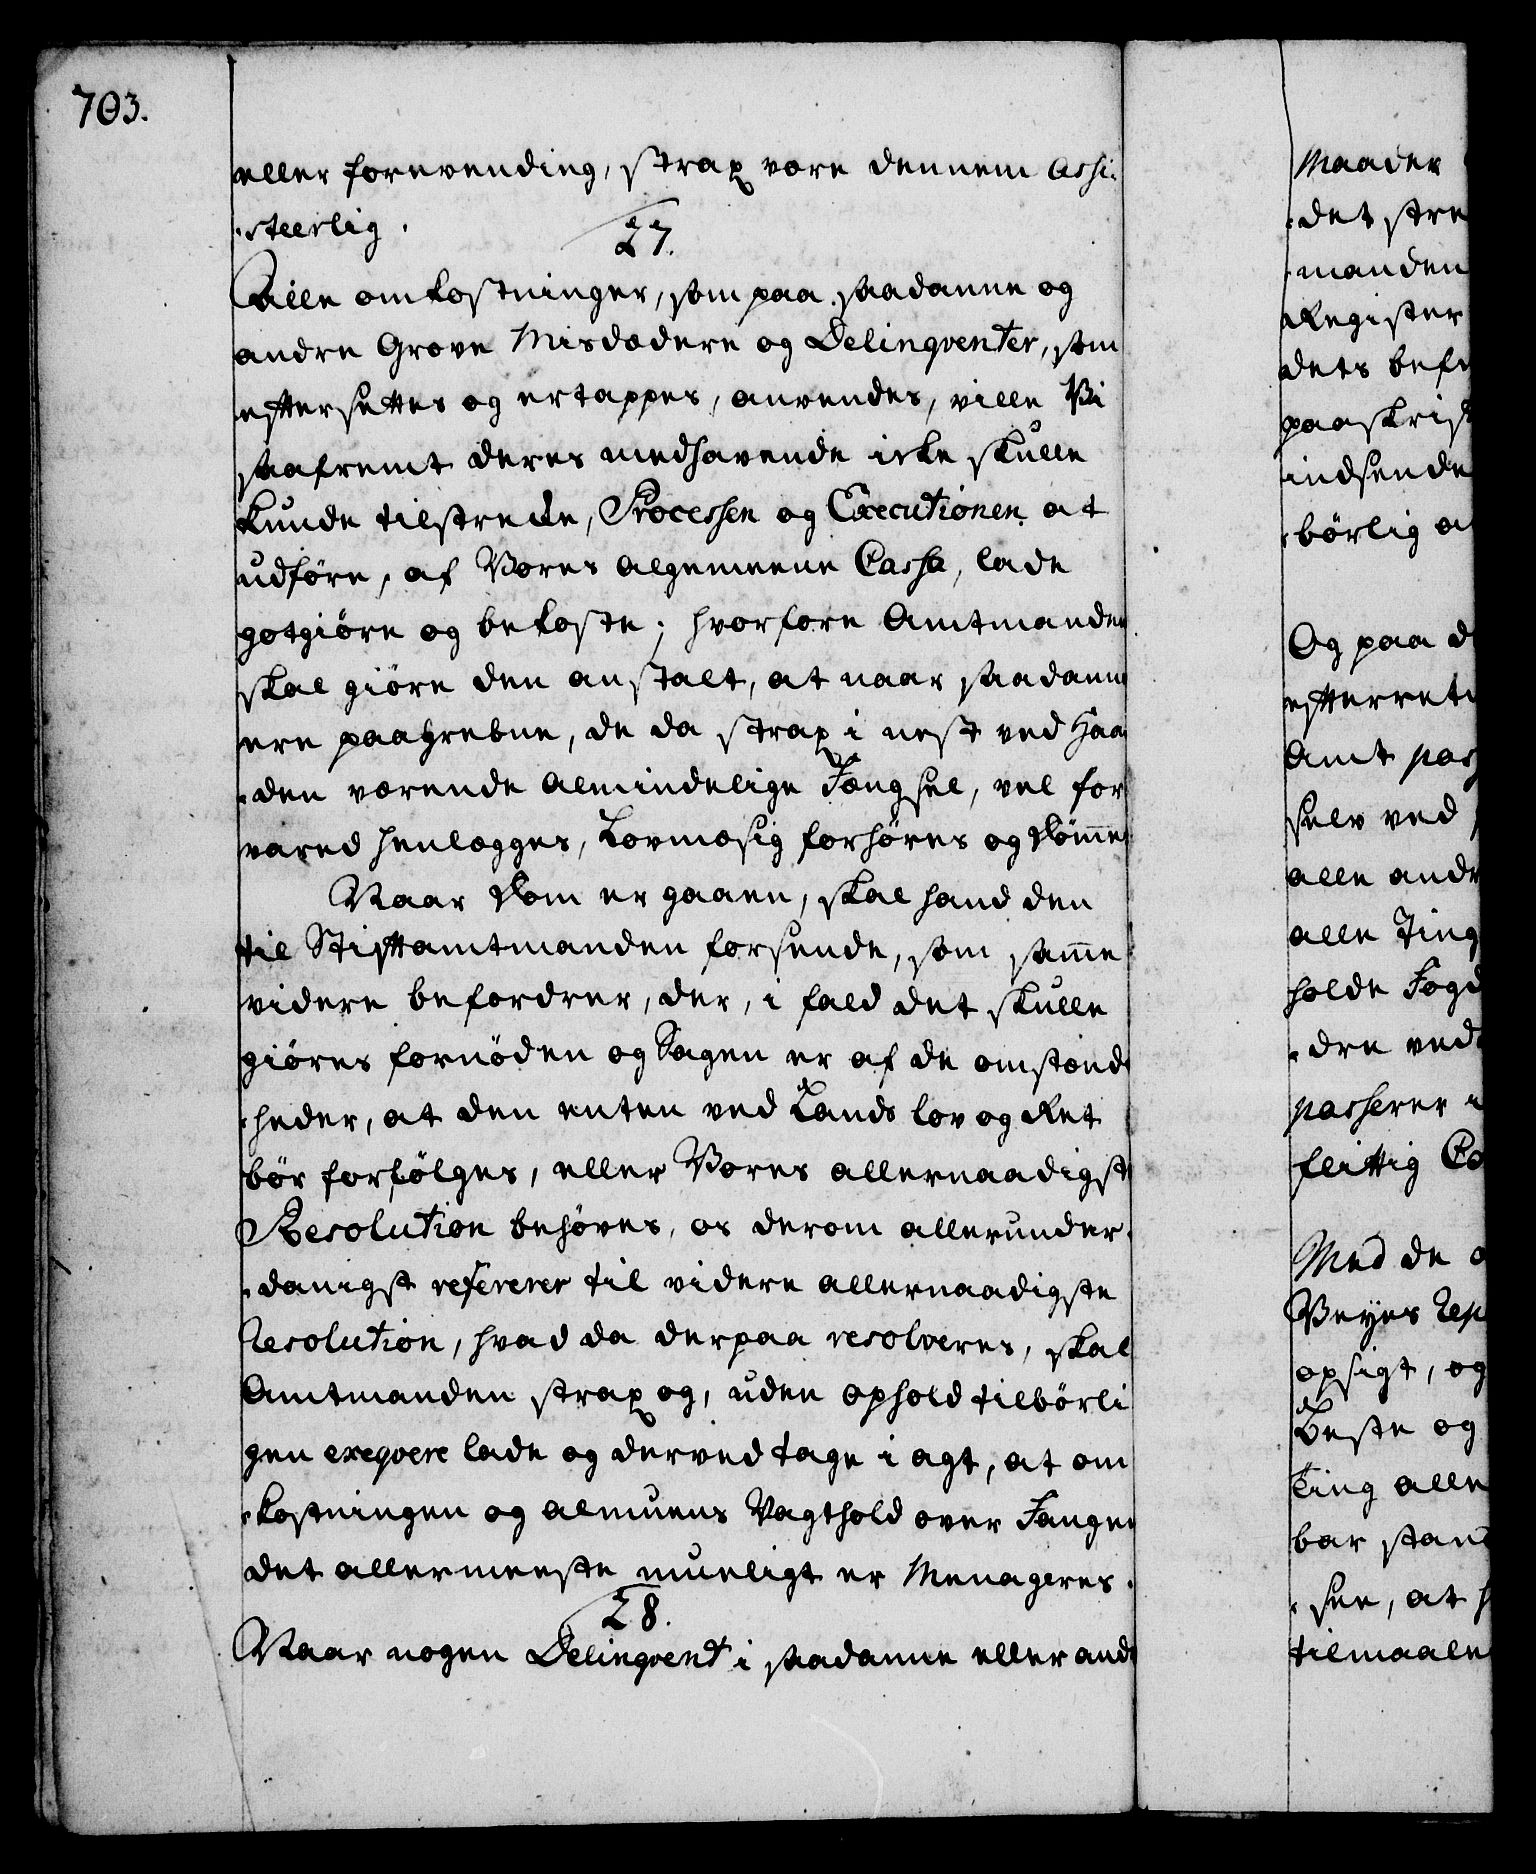 703.
eller forevending, strax være dennem Assi-
-steerlig.
27.
Alle omkostninger, som paa saadanne og
andre Grove Misdædere og Delinqventer, som
eftersettes og ertappes, anvendes, ville Vi
saafremt deres medhavende icke skulle
kunde tilstrecke, Processen og Executionen at
udføre, af Vores Algemeene Cassa, lade
gotgiøre og bekoste; hvorfore Amtmanden
skal giøre den anstalt, at naar saadanne
ere paagrebne, de da strax i nest ved Haan
-den værende Almindelige Fængsel, vel for
vared henlægges, Lovmæsig forhøres og dømmes
Naar Dom er gaaen, skal hand den
til Stiftamtmanden forsende, som samme
videre befordrer, der, i fald det skulle
giøres fornøden og Sagen er af de omstænd
-heder, at den enten ved Lands lov og Ret
bør forfølges, eller Vores allernaadigst
Resolution behøves, os derom allerunder-
-danigst refererer til videre allernaadigste
Resolution, hvad da derpaa resolveres, skal
Amtmanden strax og, uden Ophold tilbørli
gen exeqvere lade og derved tage i agt, at om
-kostningen og Almuens Vagthold over Fangen
det allermeeste mueligt er Menageres.
28.
Naar nogen Delinqvent i saadanne eller and
Maader
-det stre
-manden
Register
dets befi
paaskrif
indsende
-børlig a
Og paa d
efterreti
Amt pas
selv ved
alle andr
alle Ting
holde Fogd
-dre ved
passerer i
flittig Co
Med de a
Veyes Rep
opsigt, og
Beste og
ting alle
bar stan
-see, at h
tilmaale